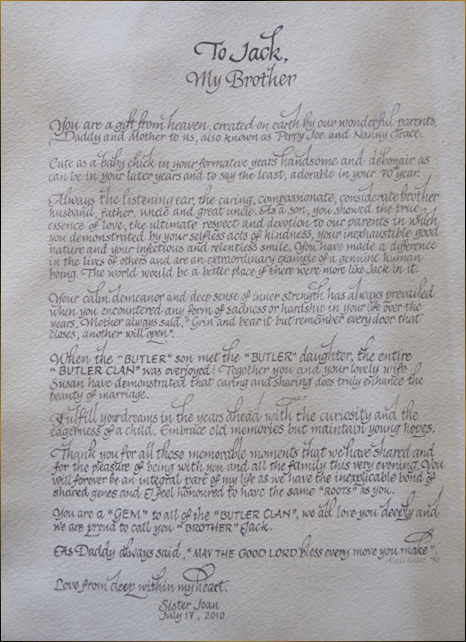 To Jack,
My Brother
You are a gift from heaven, created on earth by our wonderful parents,
Daddy and Mother to us, also known as Poppy Joe and Nanny Grace.
Cute as a baby chick in your formative years handsome and debonair as
can be in your later years and to say the least, adorable in your 70 year.
Always the listening ear, the caring, compassionate, considerate brother
husband, father, uncle and great uncle. As a son, you showed the true
essence of love, the ultimate respect and devotion to our parents in which
you demonstrated by your selfless acts of kindness, your inexhaustible good
nature and your infectious and relentless smile. You have made a difference
in the lives of others and are an extraordinary example of a genuine human
being. The world would be a better place if there were more like Jack in it.
Your calm demeanor and deep sense of inner strength has always prevailed
when you encountered any form of sadness or hardship in your life over the
years. Mother always said, "Grin and bear it but remember every door that
closes, another will open".
When the "BUTLER" son met the "BUTLER" daughter, the entire
"BUTLER CLAN" was overjoyed! Together you and your lovely wife
Susan have demonstrated that caring and sharing does truly enhance the
beauty of marriage.
Fulfill your dreams in the years ahead with the curiosity and the
eagerness of a child. Embrace old memories but maintain young hopes.
Thank you for all those memorable moments that we have shared and
for the pleasure of being with you and all the family this very evening. You
will forever be an integral part of my life as we have the inexplicable bond of
shared genes and I feel honoured to have the same "ROOTS" as you.
You are a "GEM" to all of the "BUTLER CLAN", we all love you deeply and
we are proud to call you "BROTHER" Jack.
As Daddy always said, "MAY THE GOOD LORD bless every move you make".
Love from deep within my heart.
Sister Joan
July 17, 2010